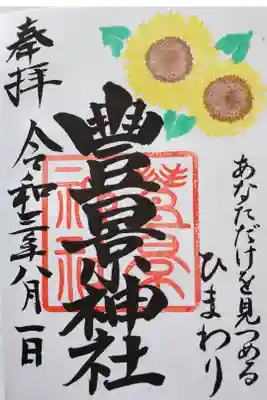 あなただけを見つめる
ひまわり
豐景神社
奉拝
令和三年八月一日